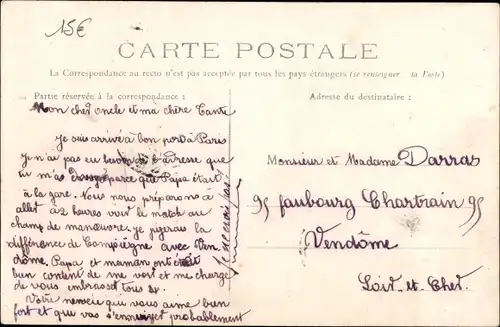 15€
CARTE POSTALE
La Correspondance au recto n'est pas acceptée par tous les pays étrangers (se renseigner la Poste)
Partie réservée à la correspondance :
Adresse du destinataire :
Mon cher oncle et ma chère Tante
Je suis arrivé à bon port à Paris
Je n'ai pas eu besoin de l'adresse que
tu m'as parce que Papa était
à la gare. Nous nous préparons à
aller à 2 heures voir le match au
champ de manœuvre je
différence de Compiègne avec Ven
dôme. Papa et maman ont été
bien content de me voir et me charge
de vous embrasser tous
Votre neveu que vous aime bien
fort et que vas s'ennuyer probablement
Monsieur et Madame Darras
95 faubourg Chartrain 95
Vendôme
Loir-et-Cher